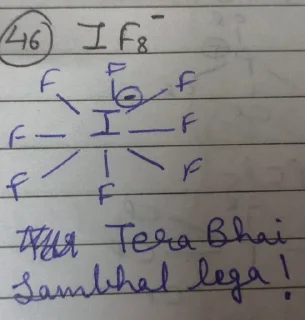 46 IF8⁻
F F F
F I⊖ F
F F F
Tera Bhai
Sambhal lega!